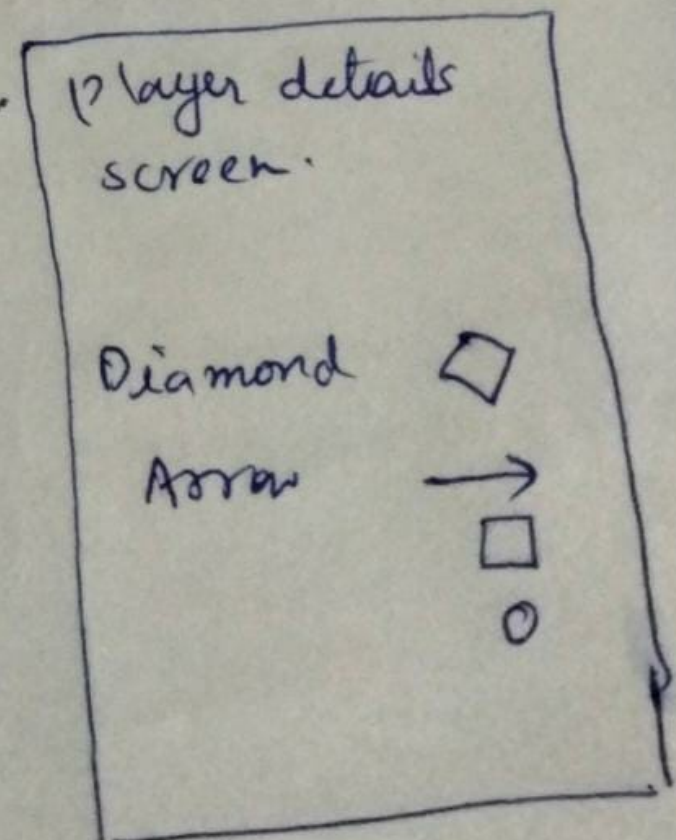 Player details
screen.
Diamond
Arrow